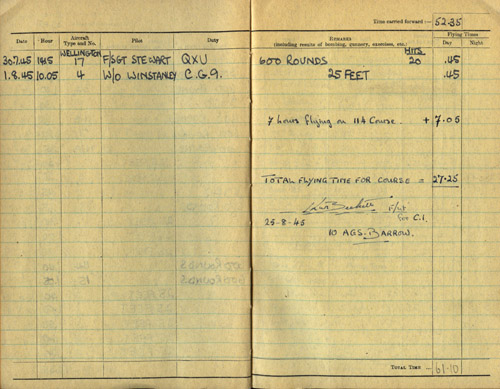 Time carried forward :— 52.35
Date Hour Aircraft Type and No. Pilot Duty REMARKS (including results of bombing, gunnery, exercises, etc.) Flying Times Day Night
WELLINGTON HITS
30.7.45 1415 17 F/SGT STEWART QXU 600 ROUNDS 20 .45
1.8.45 10.05 4 W/O WINSTANLEY C.G.9. 25 FEET .45
7 hours flying on 114 Course. + 7.05
TOTAL FLYING TIME FOR COURSE = 27.25
F/Lt
25-8-45 for C.I.
10 AGS. BARROW.
TOTAL TIME 61.10